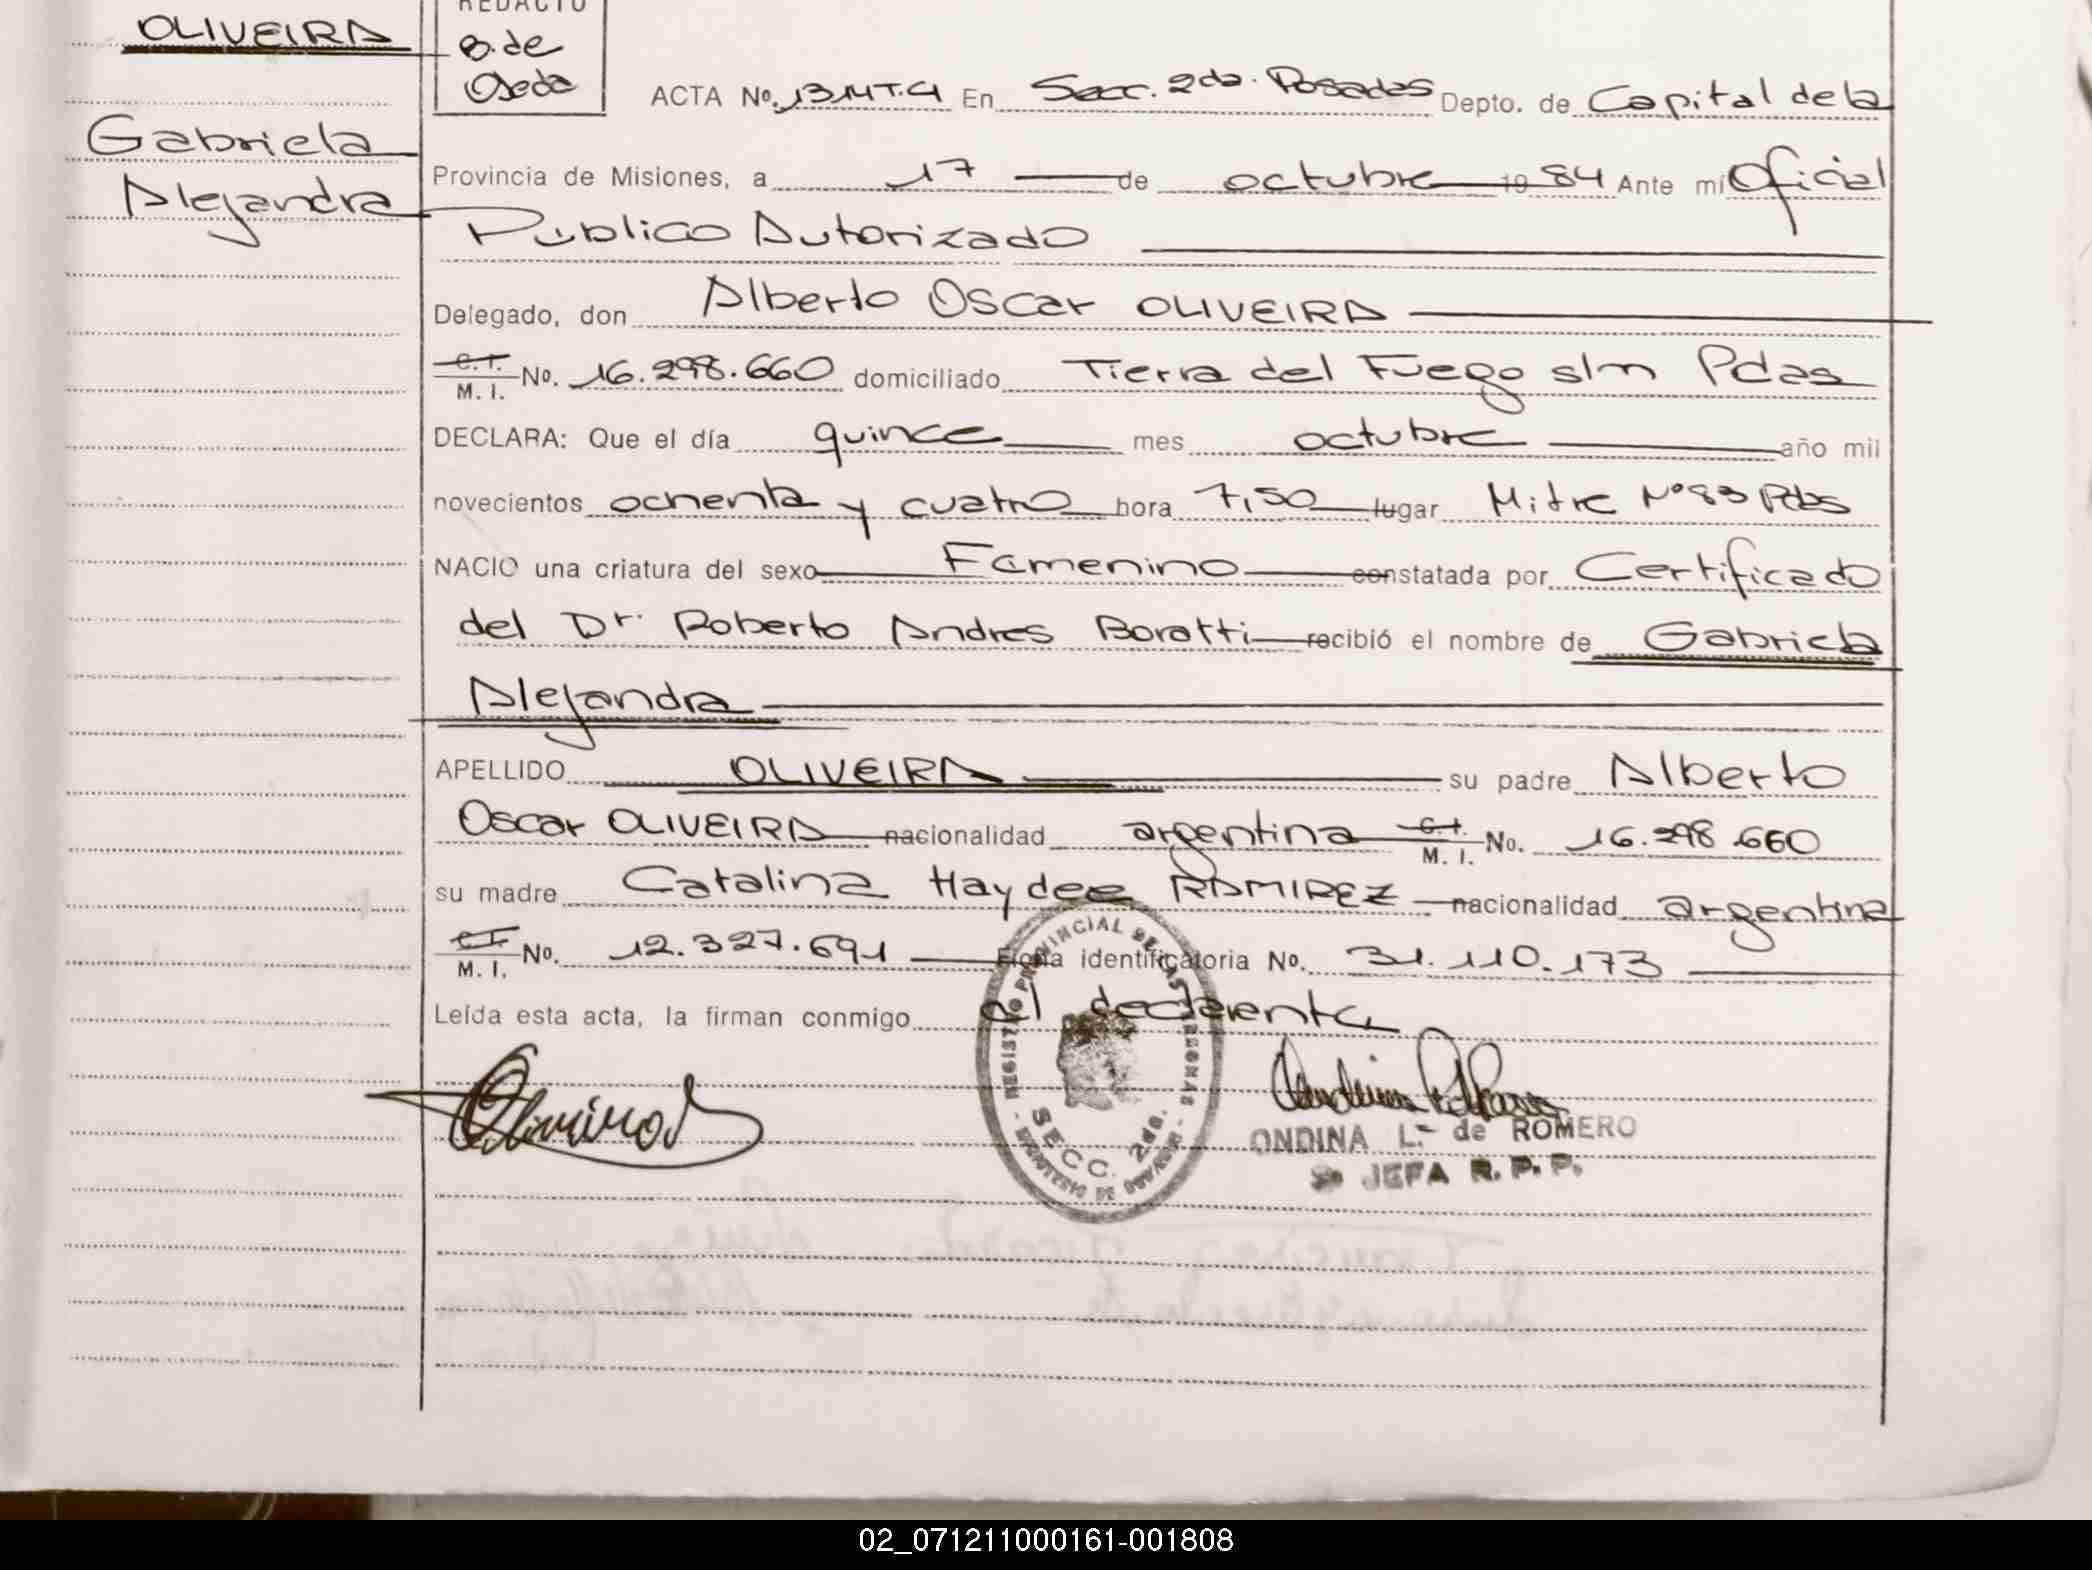 OLIVEIRA
Gabriela
Alejandra
REDACTO
B. de
Ojeda
ACTA No. 13 MT.4 En Secc. 2da. Posadas Depto. de Capital de la
Provincia de Misiones, a 17 de octubre 1984 Ante mí Oficial
Público Autorizado
Delegado, don Alberto Oscar OLIVEIRA
C.I. M. I. No. 16.298.660 domiciliado Tierra del Fuego s/n Pdas
DECLARA: Que el día quince mes octubre año mil
novecientos ochenta y cuatro hora 7,50 lugar Mitre Nº 83 Pdas
NACIO una criatura del sexo Femenino constatada por Certificado
del Dr. Roberto Andres Boratti recibió el nombre de Gabriela
Alejandra
APELLIDO OLIVEIRA su padre Alberto
Oscar OLIVEIRA nacionalidad argentina C.I. M. I. No. 16.298.660
su madre Catalina Haydee RAMIREZ nacionalidad argentina
C.I. M. I. No. 12.327.691 Ficha identificatoria No. 31.110.173
Leída esta acta, la firman conmigo el declarente
REGISTRO PROVINCIAL DE LAS PERSONAS
SECC. 2da.
ONDINA L. de ROMERO
JEFA R. P. P.
02_071211000161-001808